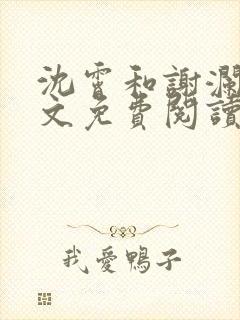 沈霄和謝瀾
文免費閱讀
我愛鴨子